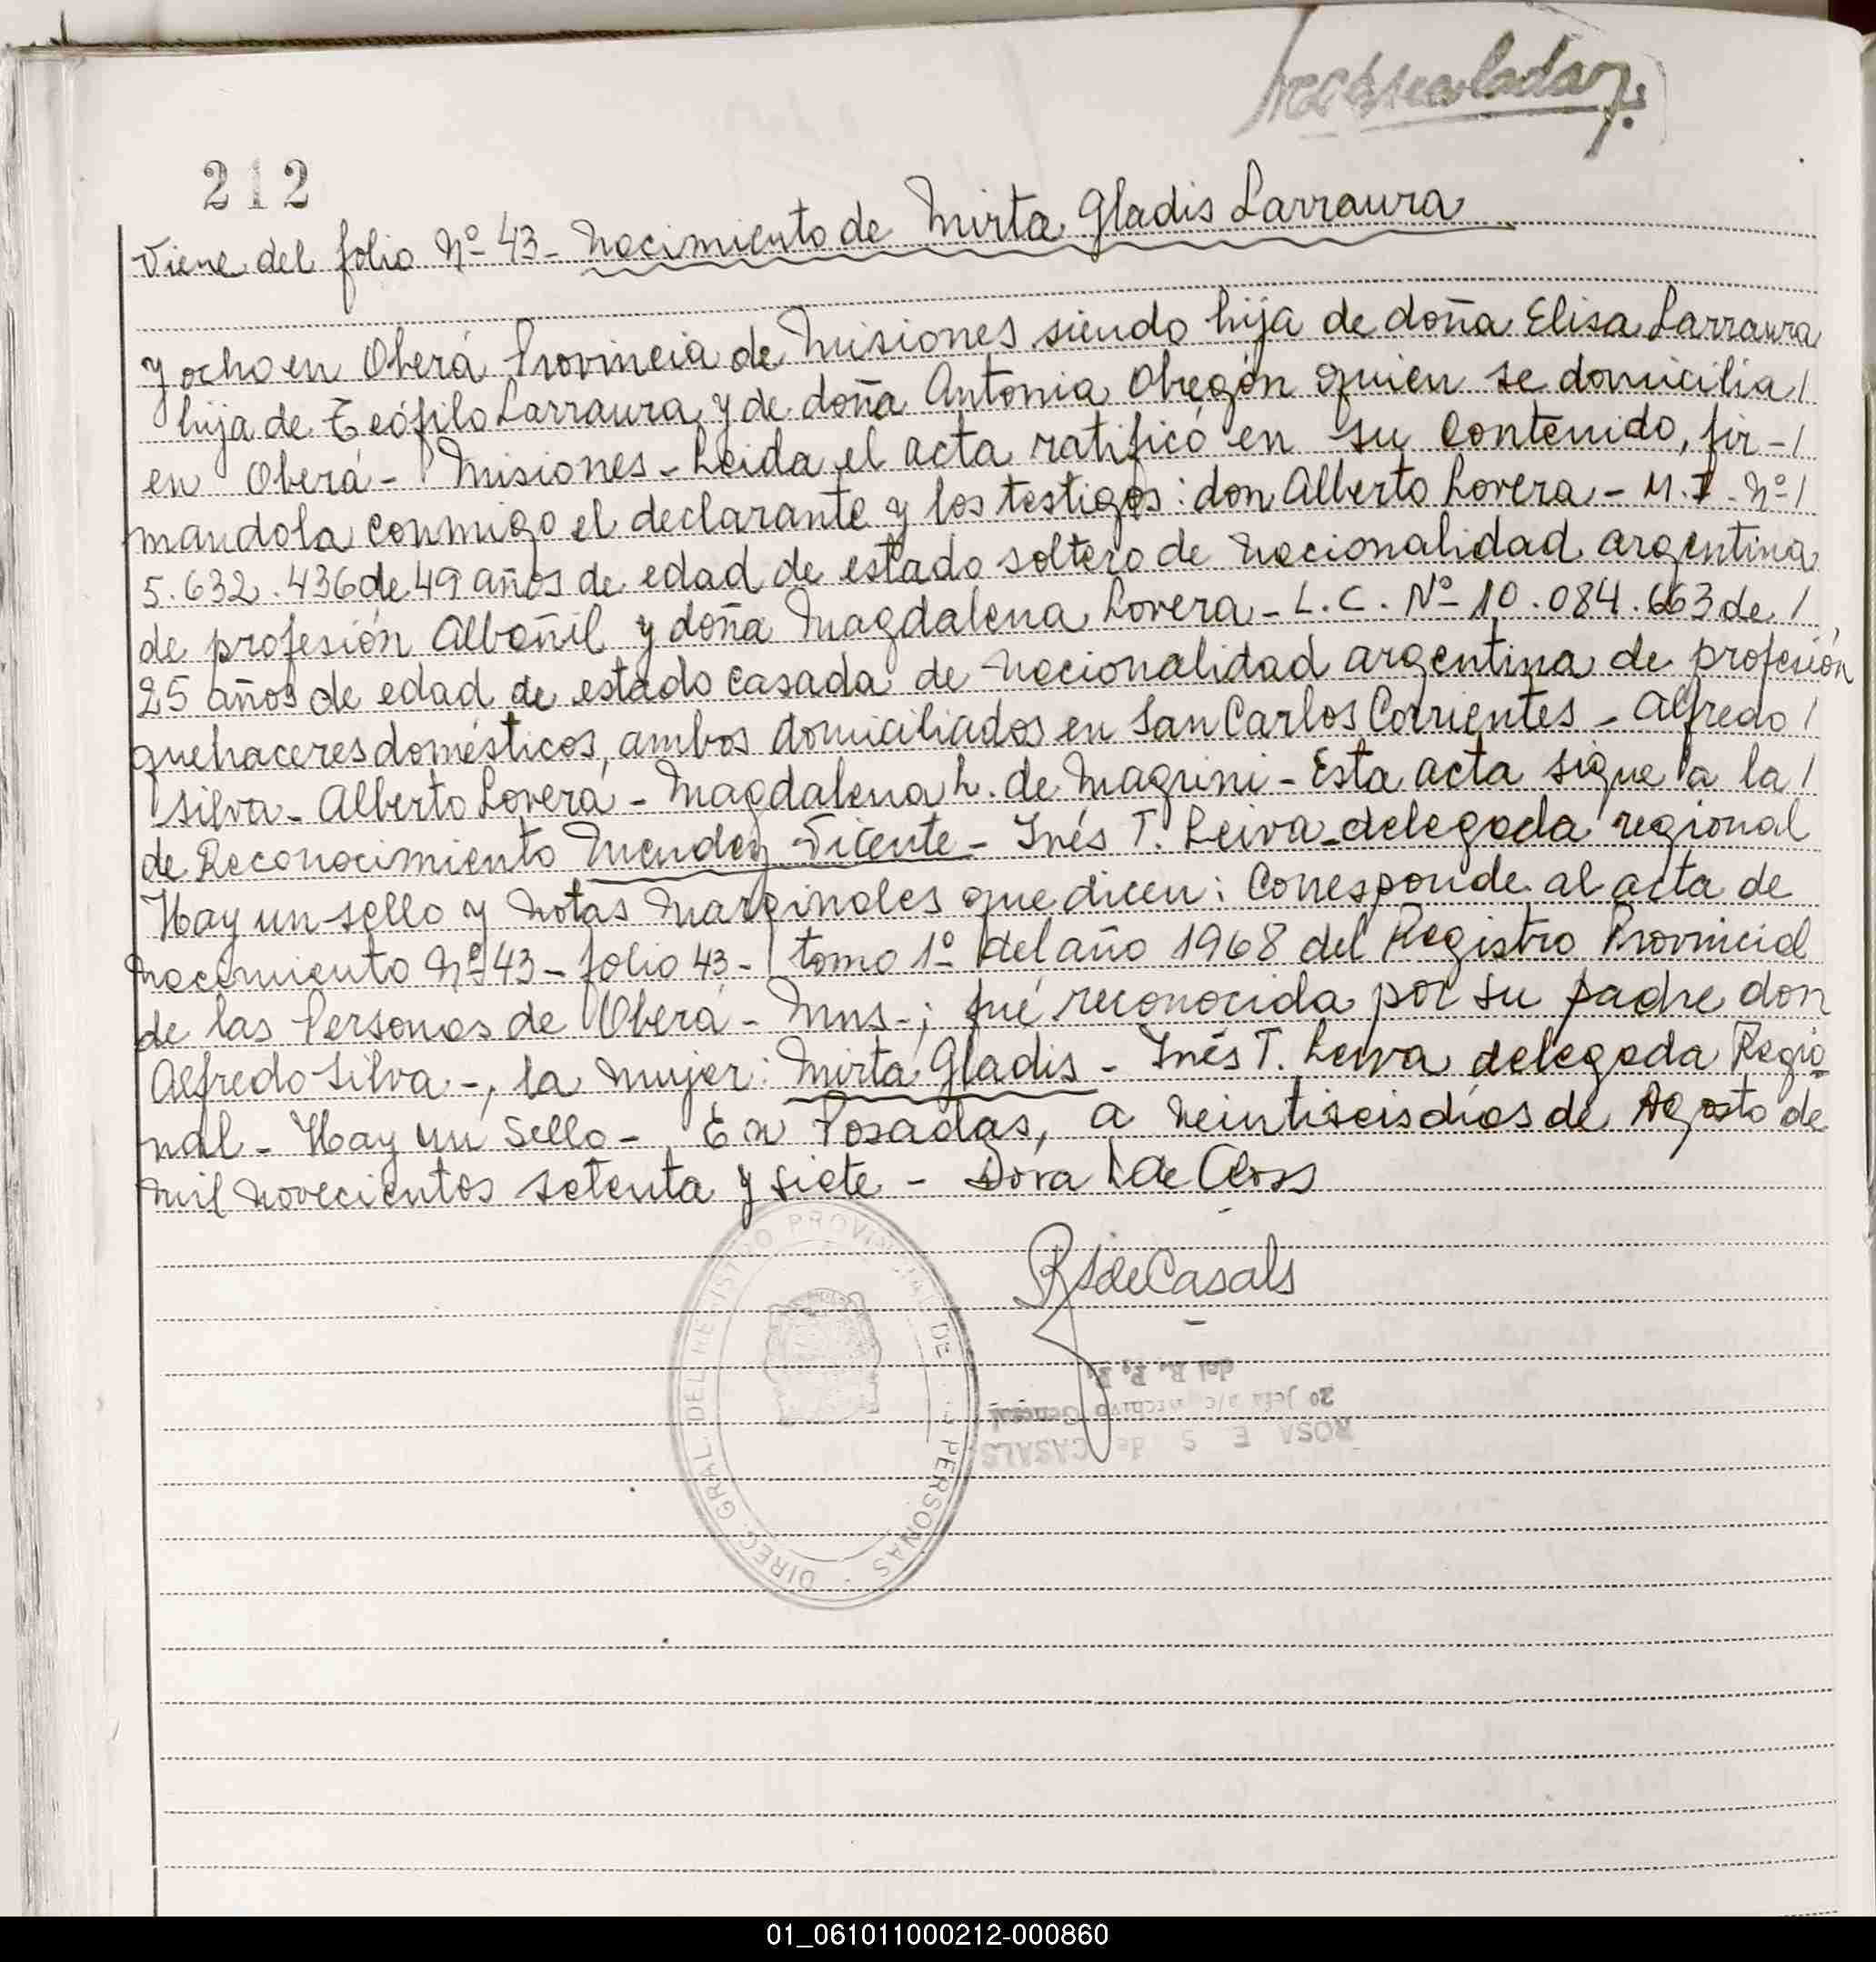 212
Viene del folio Nº 43 - Nacimiento de Mirta Gladis Larraura
y ocho en Oberá Provincia de Misiones siendo hija de doña Elisa Larraura
hija de Teófilo Larraura y de doña Antonia Obregón quien se domicilia /
en Oberá - Misiones - Leida el acta ratificó en su contenido, fir- /
mandola conmigo el declarante y los testigos: don Alberto Lovera - M.I. Nº /
5.632.436 de 49 años de edad de estado soltero de nacionalidad argentina
de profesión Albañil y doña Magdalena Lovera - L.C. Nº 10.084.663 de /
25 años de edad de estado casada de nacionalidad argentina de profesión
quehaceres domésticos, ambos domiciliados en San Carlos Corrientes - Alfredo /
Silva - Alberto Lovera - Magdalena L. de Magrini - Esta acta sigue a la /
de Reconocimiento Mendez Vicente - Inés T. Leiva - delegada regional
Hay un sello y notas marginales que dicen: Corresponde al acta de
nacimiento Nº 43 - folio 43 - tomo 1º del año 1968 del Registro Provincial
de las Personas de Oberá - Mns -; fué reconocida por su padre don
Alfredo Silva -, la mujer: Mirta Gladis - Inés T. Leiva delegada Regio
nal - Hay un Sello - En Posadas, a veintiseis días de Agosto de
mil novecientos setenta y siete - Dora de Closs
RSdeCasals
DIREC. GRAL. DEL REGISTRO PROVINCIAL DE LAS PERSONAS
del R. P. P.
2º Jefe a/c Archivo General
ROSA E S de CASALS
01_061011000212-000860